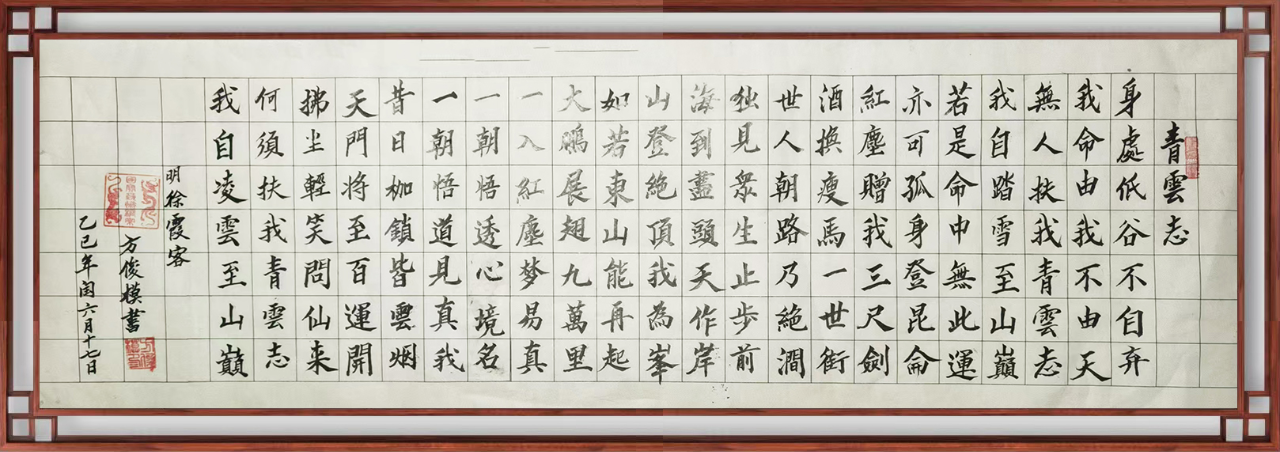 青雲志
身處低谷不自弃
我命由我不由天
無人扶我青雲志
我自踏雪至山巔
若是命中無此運
亦可孤身登昆侖
紅塵贈我三尺劍
酒換瘦馬一世街
世人朝路乃絶澗
独見眾生止步前
海到盡頭天作岸
山登絶頂我為峯
如若東山能再起
大鵬展翅九萬里
一入紅塵梦易真
一朝悟透心境名
一朝悟道見真我
昔日枷鎖皆雲烟
天門将至百運開
拂尘輕笑問仙来
何須扶我青雲志
我自凌雲至山巔
明徐霞客
方俊模書
乙巳年闰六月十七日